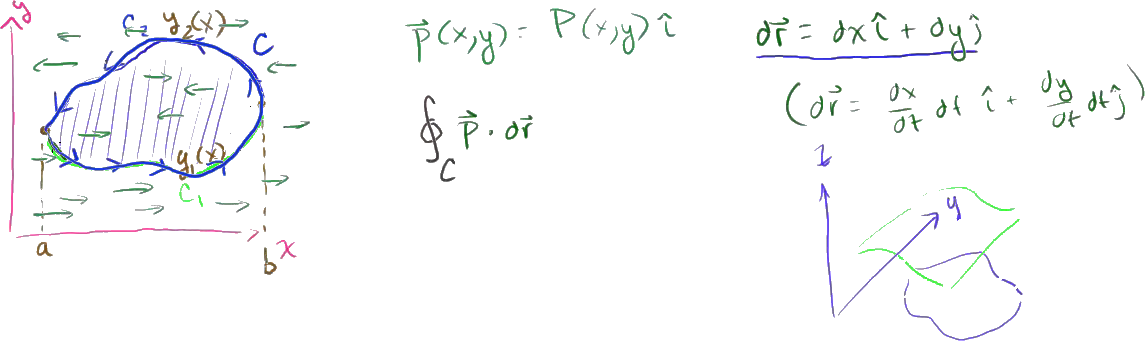 y
C₂ y₂(x)
C
y₁(x)
C₁
a
b
x
p⃗(x,y) = P(x,y) î
∮_C p⃗ · dr⃗
dr⃗ = dx î + dy ĵ
(dr⃗ = dx/dt dt î + dy/dt dt ĵ)
z
y